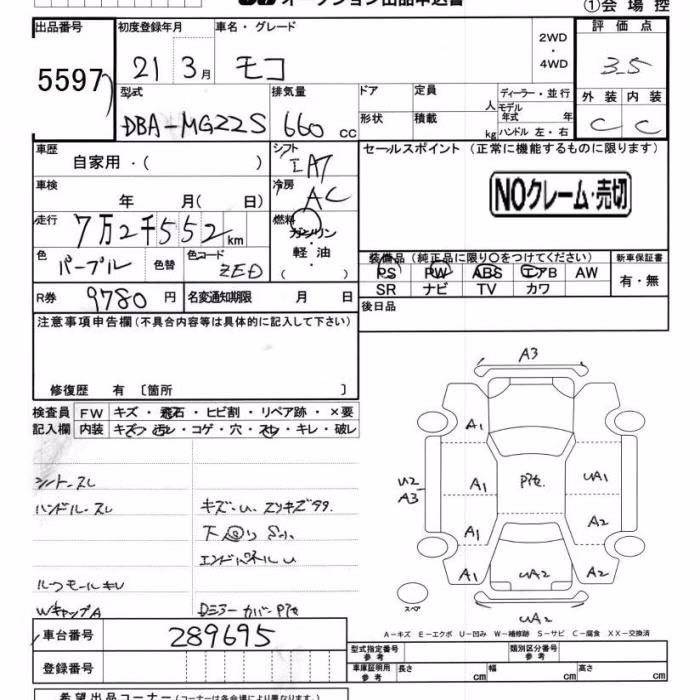 オークション出品申込書
①会場控
出品番号 初度登録年月 車名・グレード 2WD・4WD 評価点
5597 21 3月 モコ 3.5
型式 排気量 ドア 定員 人 ディーラー・並行 外装 内装
DBA-MG22S 660 cc 形状 積載 kg モデル年式 年 ハンドル 左・右 C C
車歴 自家用・( ) シフト IAT セールスポイント (正常に機能するものに限ります)
車検 年 月( 日) 冷房 AC NOクレーム・売切
走行 7万2千552km 燃料 ガソリン・軽油・( )
色 パープル 色替 色コード ZED 装備品 (純正品に限り○をつけてください) 新車保証書
PS PW ABS エアB AW 有・無
SR ナビ TV カワ
R券 9780円 名変通知期限 月 日 後日品
注意事項申告欄(不具合内容等は具体的に記入して下さい)
修復歴 有 〔箇所 〕
検査員 FW キズ・飛石・ヒビ割・リペア跡・×要
記入欄 内装 キズ・汚レ・コゲ・穴・スレ・キレ・破レ
シートスレ
ハンドルスレ キズ・U、スリキズ99.
下回りSハ
エンドパネルU
ルーフモールキレ
WキャップA DミラーカバーPセ
A3
A1
U2 A3 A1 Pセ. UA1
A1 A2
A1 UA2 A2
スペア UA2
A-キズ E-エクボ U-凹み W-補修跡 S-サビ C-腐食 XX-交換済
車台番号 289695 型式指定番号 参考 類別区分番号 参考
登録番号 車庫証明用 参考 長さ cm 幅 cm 高さ cm
希望出品コーナー(コーナーは各会場で異なります。)